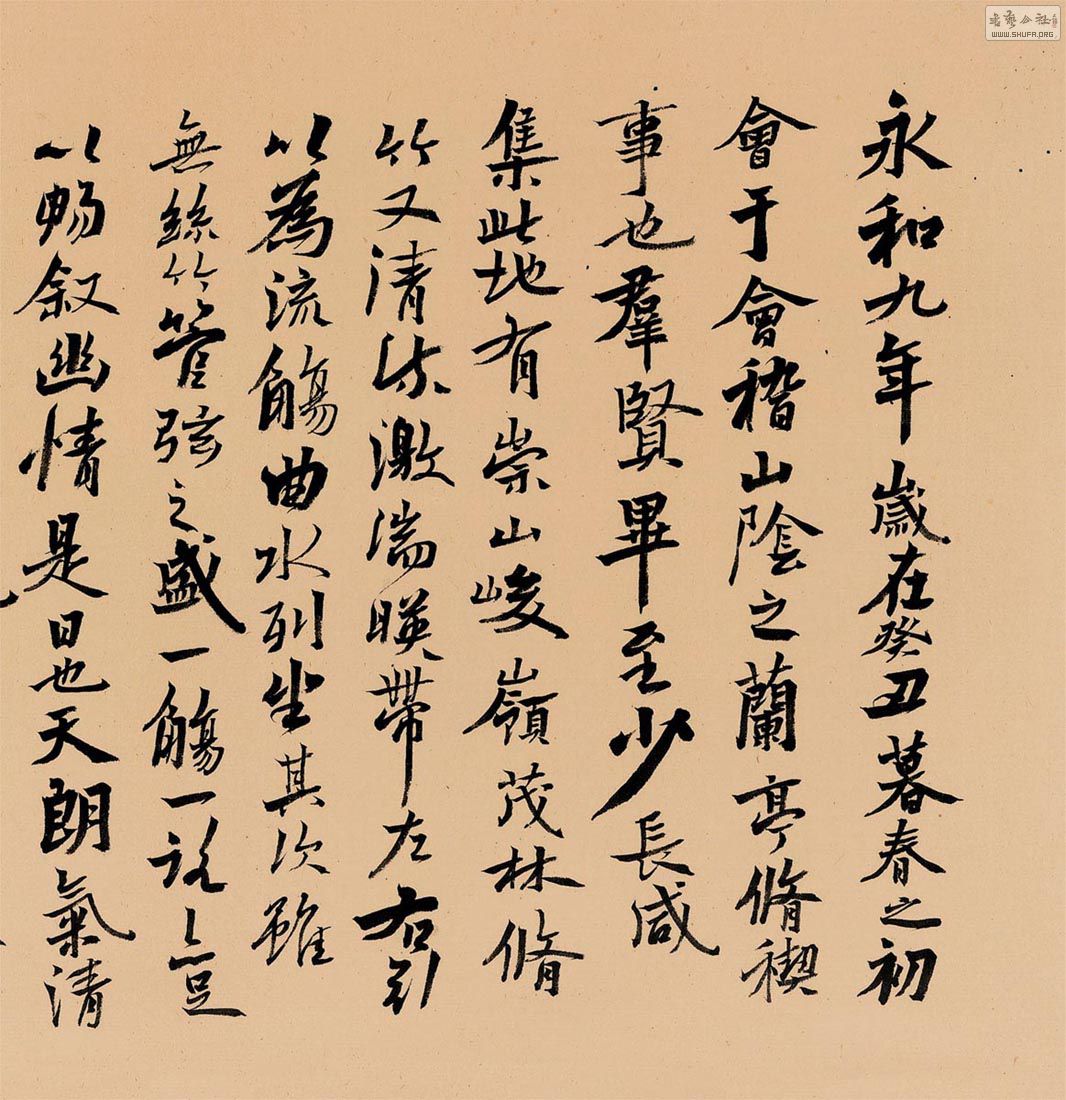 永和九年歲在癸丑暮春之初
會于會稽山陰之蘭亭脩禊
事也羣賢畢至少長咸
集此地有崇山峻嶺茂林脩
竹又清流激湍暎帶左右引
以為流觴曲水列坐其次雖
無絲竹管弦之盛一觴一詠亦足
以暢叙幽情是日也天朗氣清
書藝公社
WWW.SHUFA.ORG